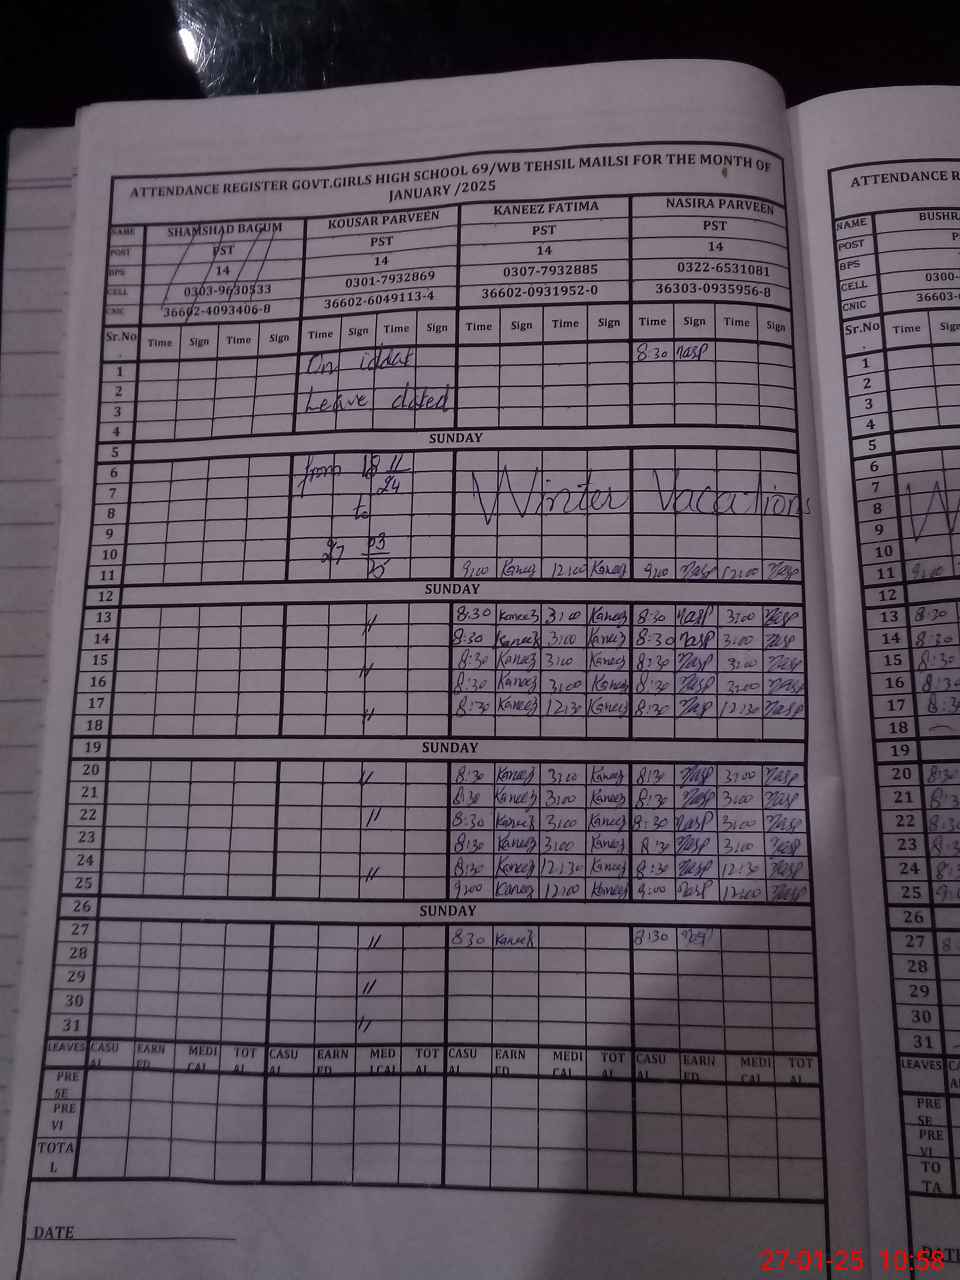 ATTENDANCE REGISTER GOVT.GIRLS HIGH SCHOOL 69/WB TEHSIL MAILSI FOR THE MONTH OF
JANUARY /2025
NAME SHAMSHAD BAGUM KOUSAR PARVEEN KANEEZ FATIMA NASIRA PARVEEN
POST PST PST PST PST
BPS 14 14 14 14
CELL 0303-9630533 0301-7932869 0307-7932885 0322-6531081
CNIC 36602-4093406-8 36602-6049113-4 36602-0931952-0 36303-0935956-8
Sr.No. Time Sign Time Sign Time Sign Time Sign Time Sign Time Sign Time Sign Time Sign
1 On iddat 8:30 nasp
2
3 Leave dated
4
5 SUNDAY
6 from 18 11
7 24 Winter Vacations
8 to
9
10 27 03
11 25 9:00 Kaneez 12:00 Kaneez 9:00 nasp 12:00 nasp
12 SUNDAY
13 〃 8:30 Kaneez 3:00 Kaneez 8:30 nasp 3:00 nasp
14 8:30 Kaneez 3:00 Kaneez 8:30 nasp 3:00 nasp
15 〃 8:30 Kaneez 3:00 Kaneez 8:30 nasp 3:00 nasp
16 8:30 Kaneez 3:00 Kaneez 8:30 nasp 3:00 nasp
17 〃 8:30 Kaneez 12:30 Kaneez 8:30 nasp 12:30 nasp
18
19 SUNDAY
20 〃 8:30 Kaneez 3:00 Kaneez 8:30 nasp 3:00 nasp
21 8:30 Kaneez 3:00 Kaneez 8:30 nasp 3:00 nasp
22 〃 8:30 Kaneez 3:00 Kaneez 8:30 nasp 3:00 nasp
23 8:30 Kaneez 3:00 Kaneez 8:30 nasp 3:00 nasp
24 〃 8:30 Kaneez 12:30 Kaneez 8:30 nasp 12:30 nasp
25 9:00 Kaneez 12:00 Kaneez 9:00 nasp 12:00 nasp
26 SUNDAY
27 〃 8:30 Kaneez 8:30 nasp
28
29 〃
30
31 〃
LEAVES CASUAL EARNED MEDICAL TOTAL CASUAL EARNED MEDICAL TOTAL CASUAL EARNED MEDICAL TOTAL CASUAL EARNED MEDICAL TOTAL
PRE
SE
PRE
VI
TOTA
L
DATE
ATTENDANCE R
NAME BUSHR
POST P
BPS
CELL 0300-
CNIC 36603-
Sr.No Time Sign
1
2
3
4
5
6
7
8
9
10
11 9:00
12
13 8:30
14 8:30
15 8:30
16 8:30
17 8:30
18
19
20 8:30
21 8:30
22 8:30
23 8:30
24 8:30
25 9:0
26
27 8
28
29
30
31
LEAVES
PRE
SE
PRE
VI
TO
TA
DATE
27-01-25 10:58